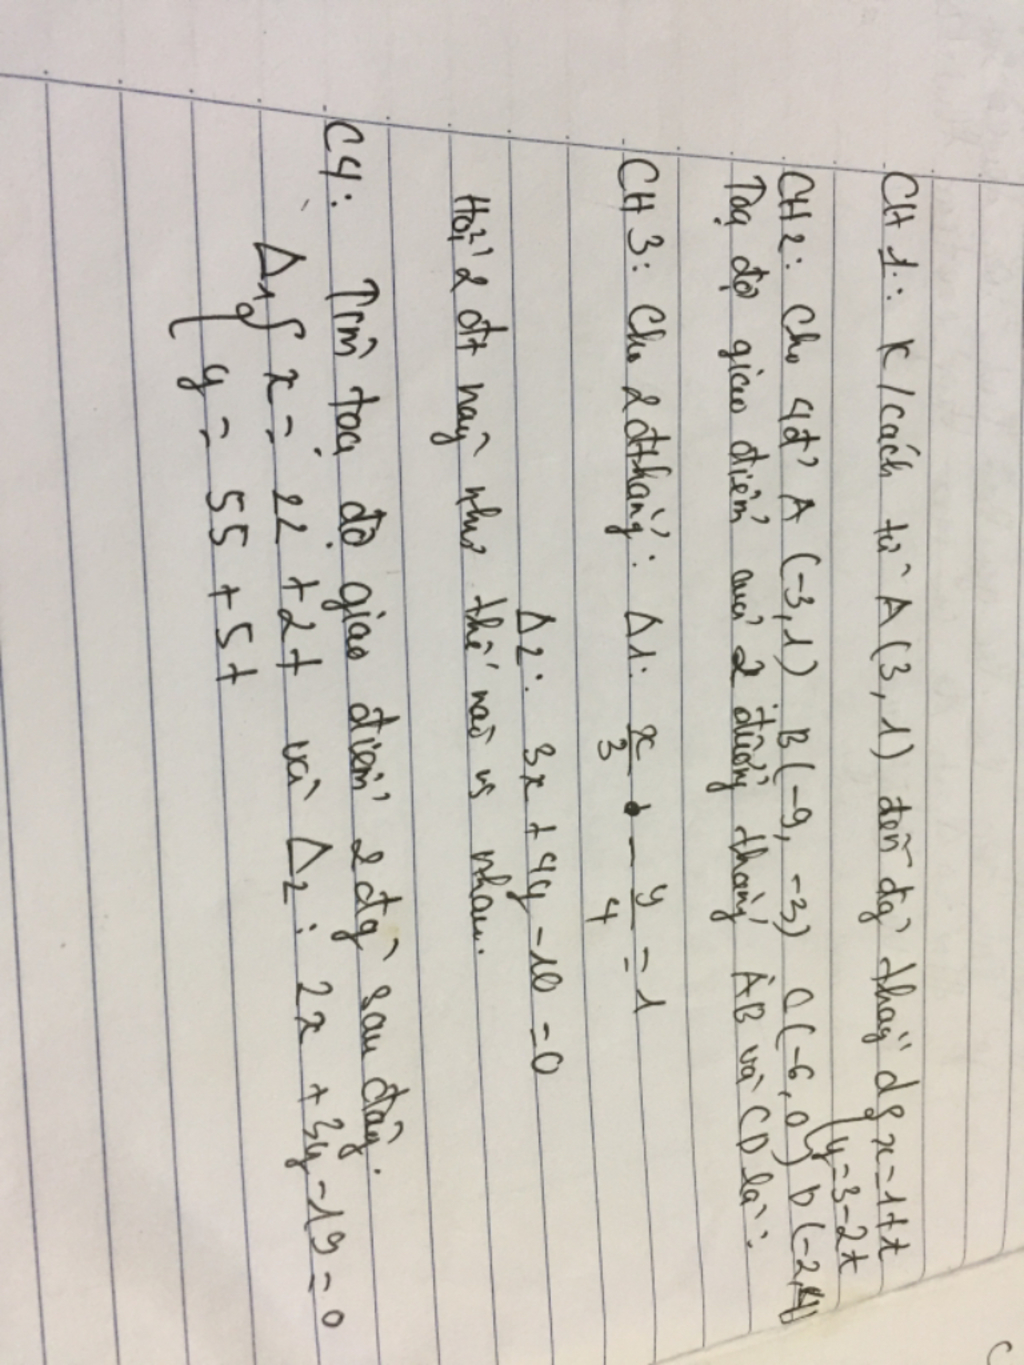 CH 1: K/cách từ A (3, 1) đến đg' thẳng d { x = 1 + t
{ y = 3 - 2t
CH 2: Cho 4đ' A (-3, 1) B (-9, -3) C (-6, 0) D (-2, 4)
Toạ độ giao điểm của 2 đường thẳng AB và CD là:
CH 3: Cho 2 đthẳng: Δ1: x/3 - y/4 = 1
Δ2: 3x + 4y - 10 = 0
Hỏi 2 đt này như thế nào vs nhau.
C4: Tìm toạ độ giao điểm 2 đg' sau đây.
Δ1 { x = 22 + 2t và Δ2: 2x + 3y - 19 = 0
{ y = 55 + 5t